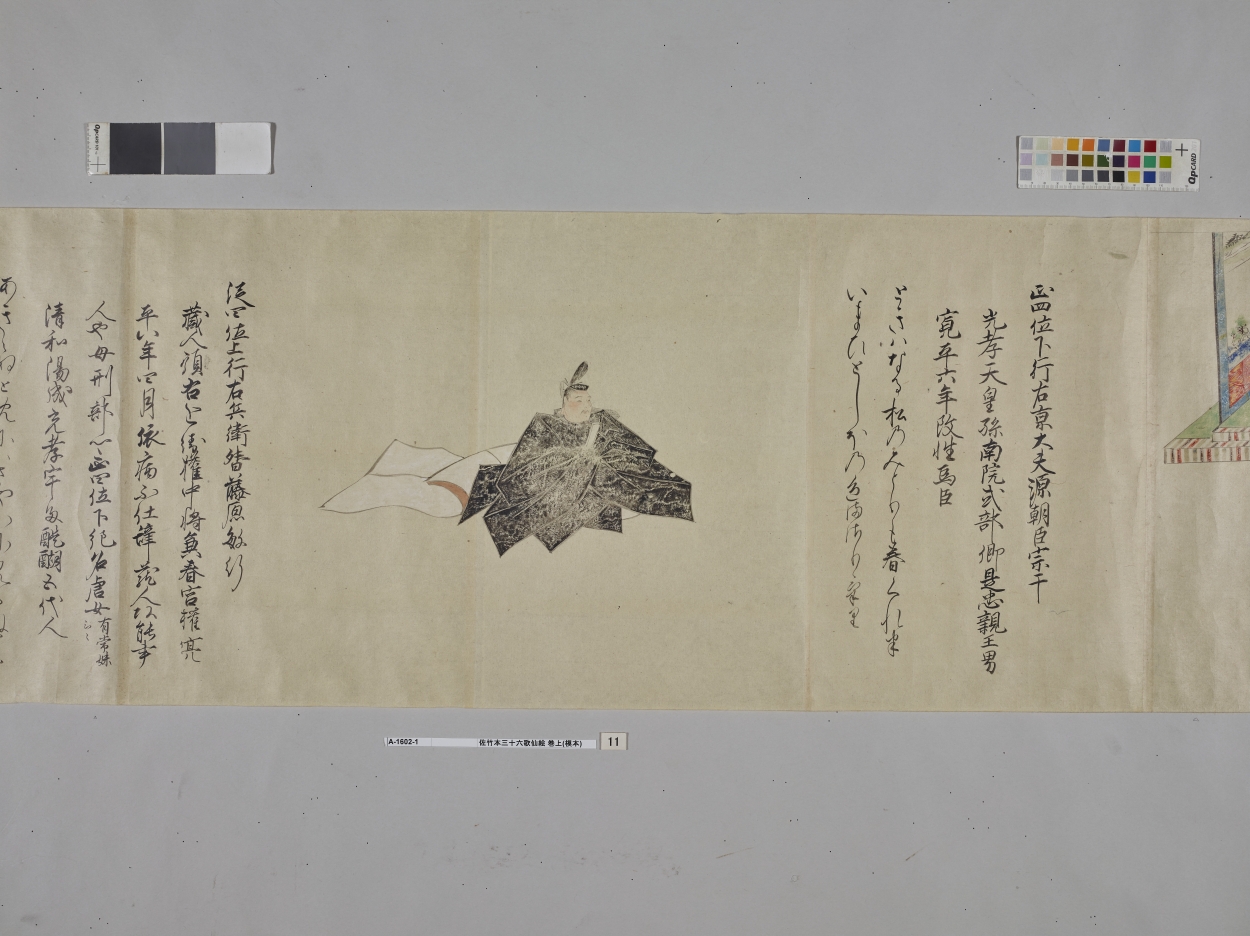 正四位下行右京大夫源朝臣宗于
光孝天皇孫南院式部卿是忠親王男
寛平六年改姓為臣
ときはなる松のみとりも春くれは
いまひとしほの色まさりけり
従四位上行右兵衛督藤原敏行
蔵人頭右近衛権中将兼春宮権亮
平八年四月依病不仕辞蔵人
人也母刑部 正四位下紀名虎女有常妹
清和陽成光孝宇多醍醐五代人
あききぬと
A-1602-1 佐竹本三十六歌仙絵 巻上(模本) 11
QPCARD
QPCARD